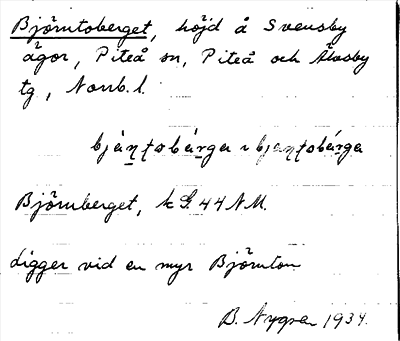 Björntoberget, höjd å Svensby
ägor, Piteå sn, Piteå och Älvsby
tg, Norrb. l.
bjä̀ṇṭobárga ~ bjäṇṭobárga
Björnberget, k G. 44 NM.
Ligger vid en myr Björnton
B. Nygren 1934.